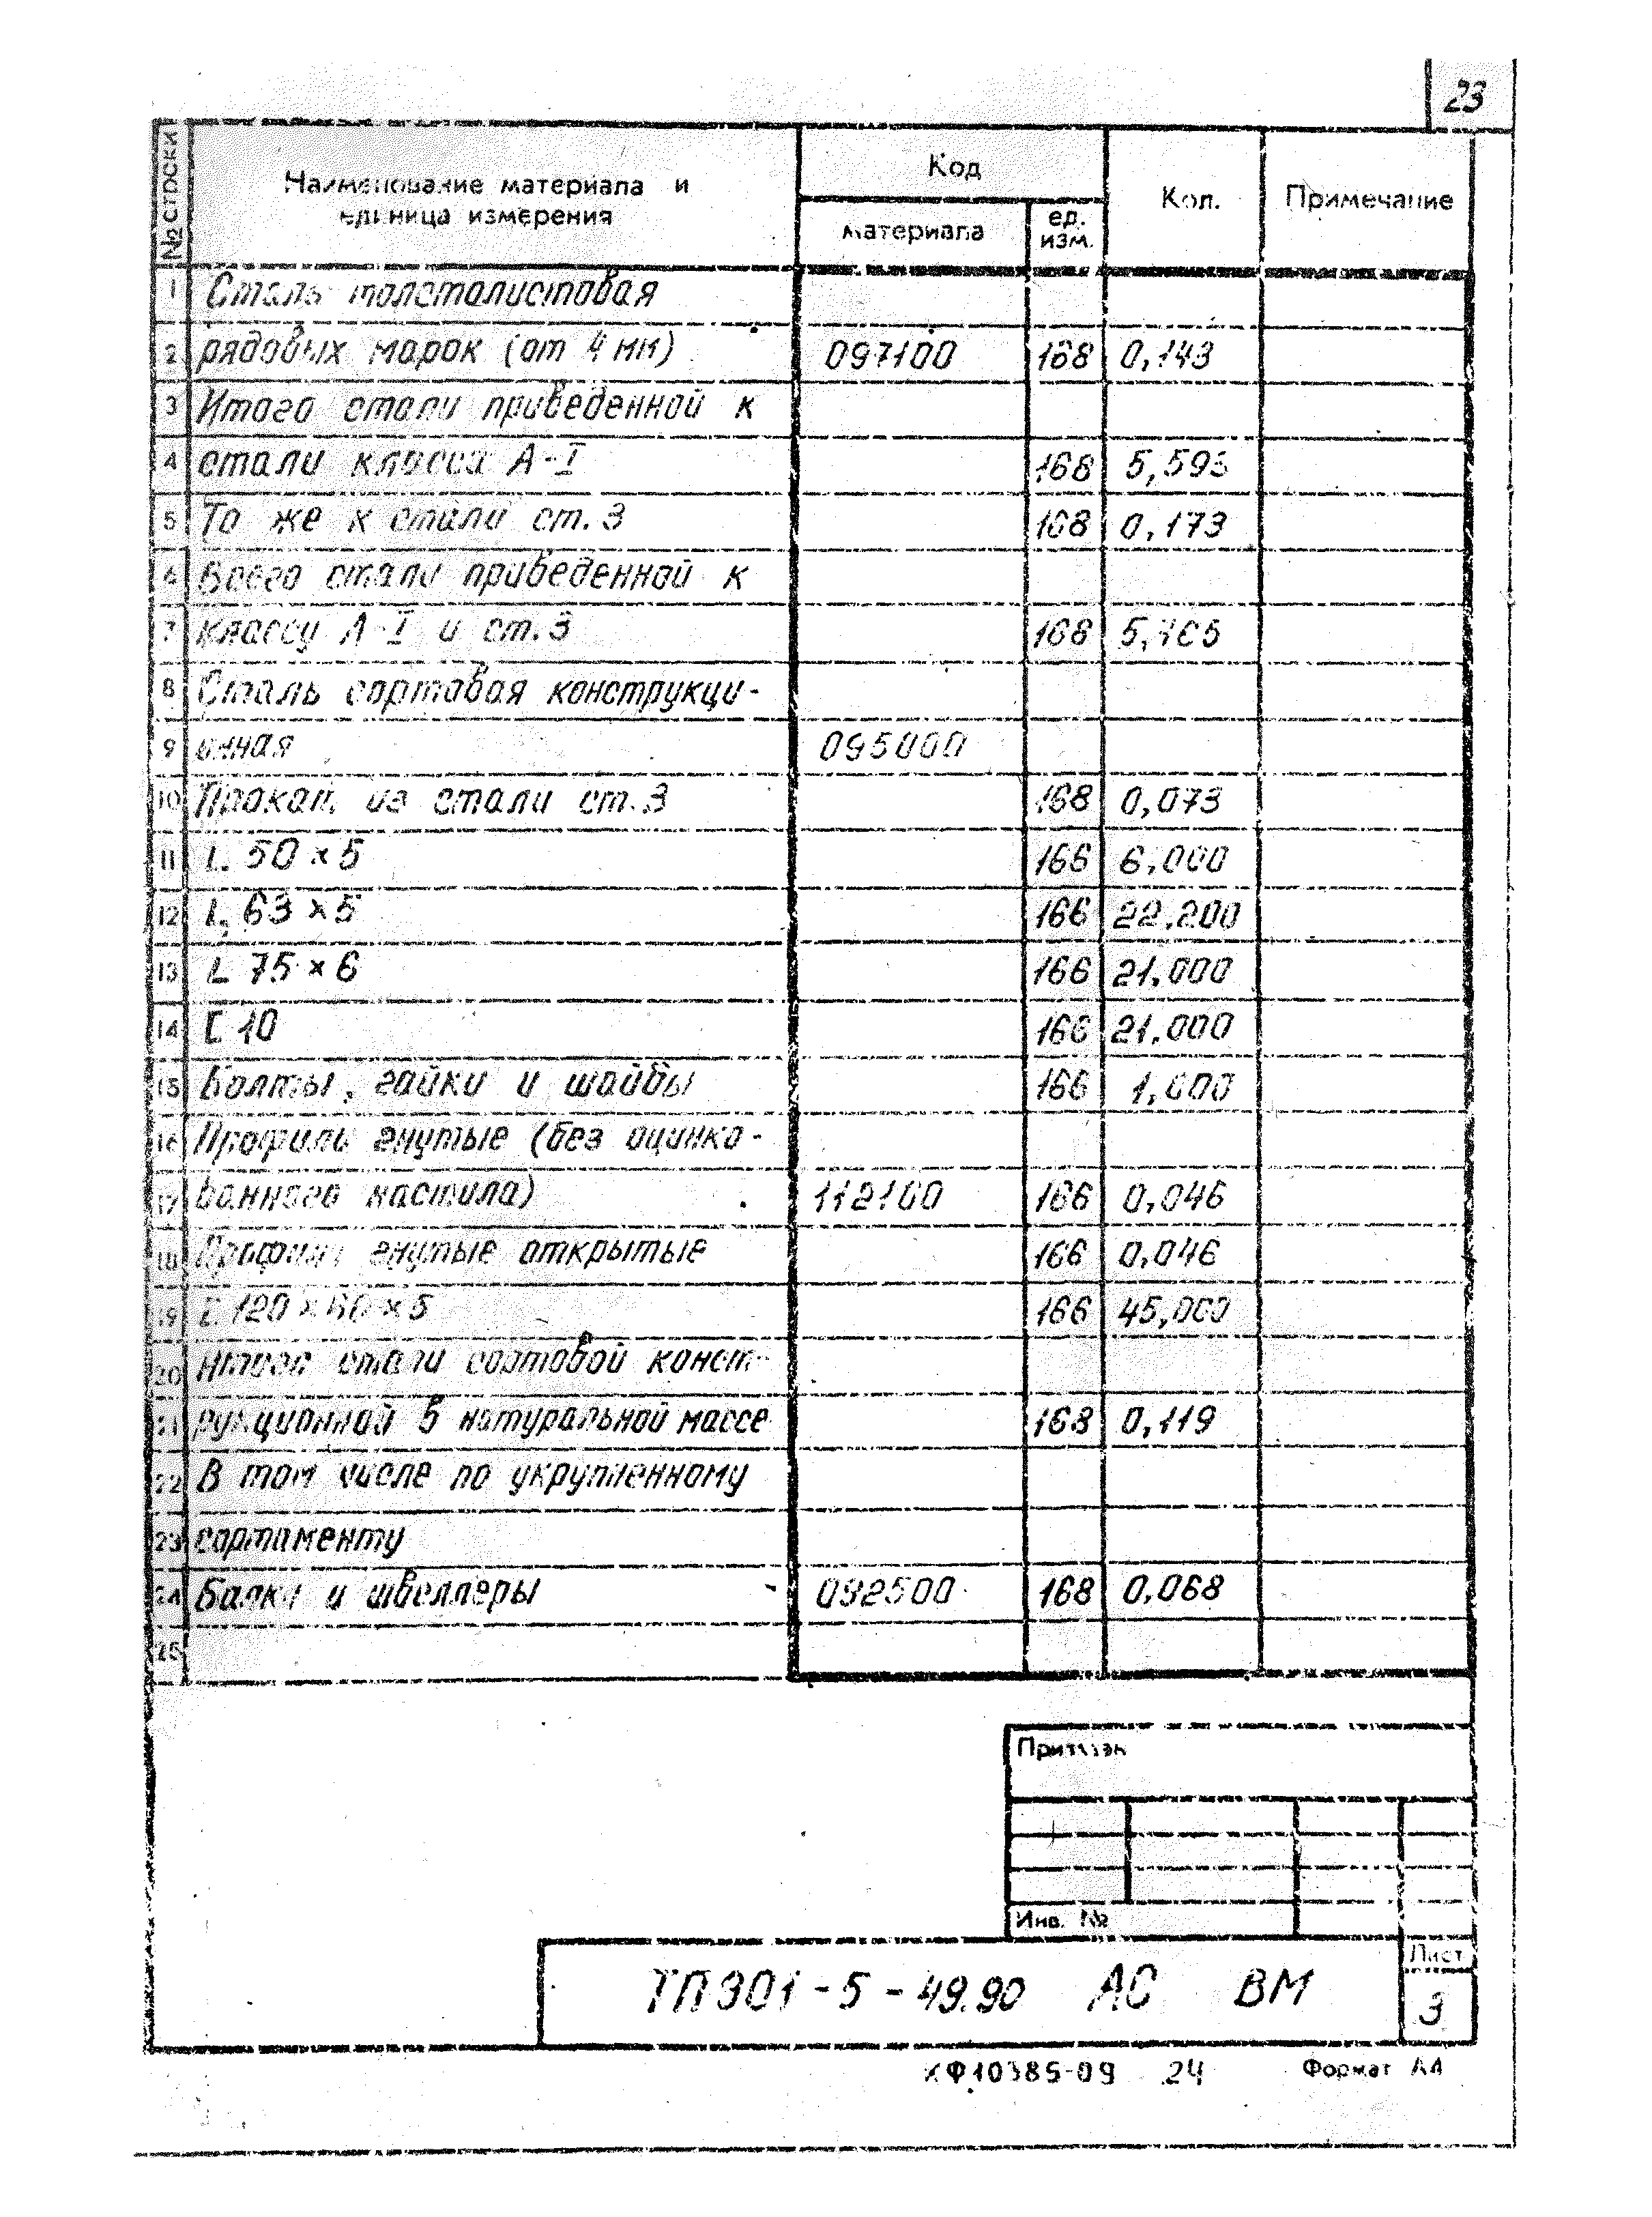 23
№ строки
Наименование материала и единица измерения
Код
материала
ед. изм.
Кол.
Примечание
1 Сталь толстолистовая
2 рядовых марок (от 4 мм) 097100 168 0,143
3 Итого стали приведенной к
4 стали класса А-I 168 5,593
5 То же к стали ст. 3 168 0,173
6 Всего стали приведенной к
7 классу А-I и ст. 3 168
8 Сталь сортовая конструкци-
9 онная 095000
10 Прокат из стали ст. 3 168 0,073
11 L 50 × 5 166 6,000
12 L 63 × 5 166 22,200
13 L 75 × 6 166 21,000
14 [ 10 166 21,000
15 Болты, гайки и шайбы 166 1,000
16 Профили гнутые (без оцинко-
17 ванного настила) 112100 166 0,046
18 Профили гнутые открытые 166 0,046
19 [ 120 × 60 × 5 166 45,000
20 Итого стали сортовой конст-
21 рукционной в натуральной массе 168 0,119
22 В том числе по укрупненному
23 сортаменту
24 Балки и швеллеры 092500 168 0,068
25
Привязан
Инв. №
ТП 301-5-49.90 АС ВМ
Лист
3
КФ10385-09 24 Формат А4